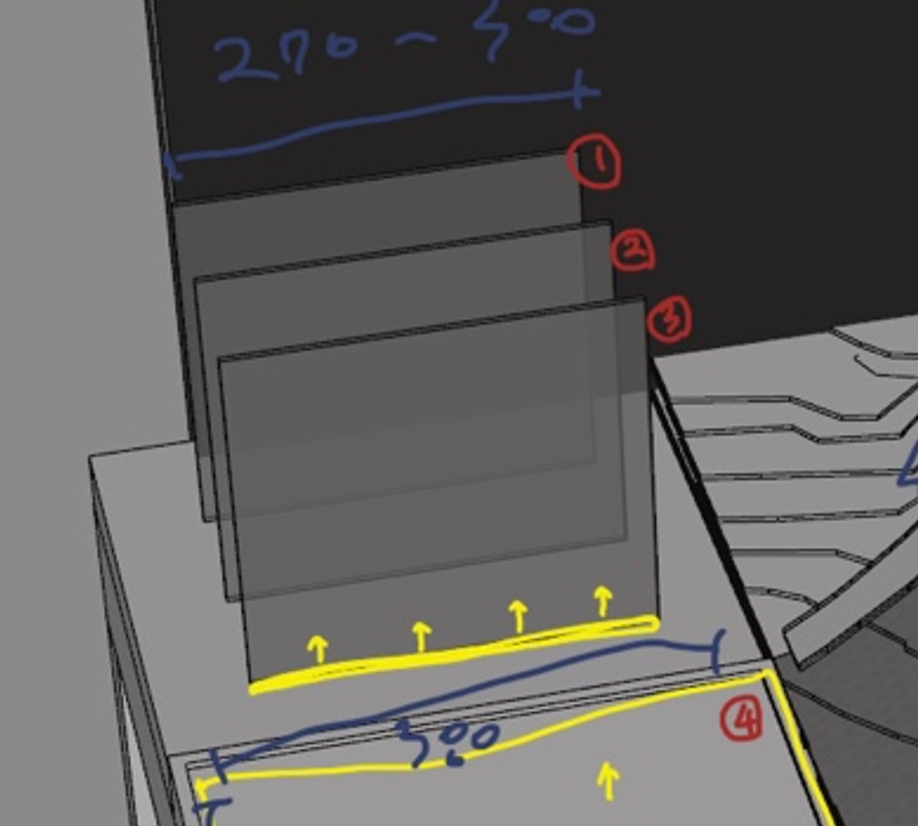 270 ~ 300
①
②
③
④
300